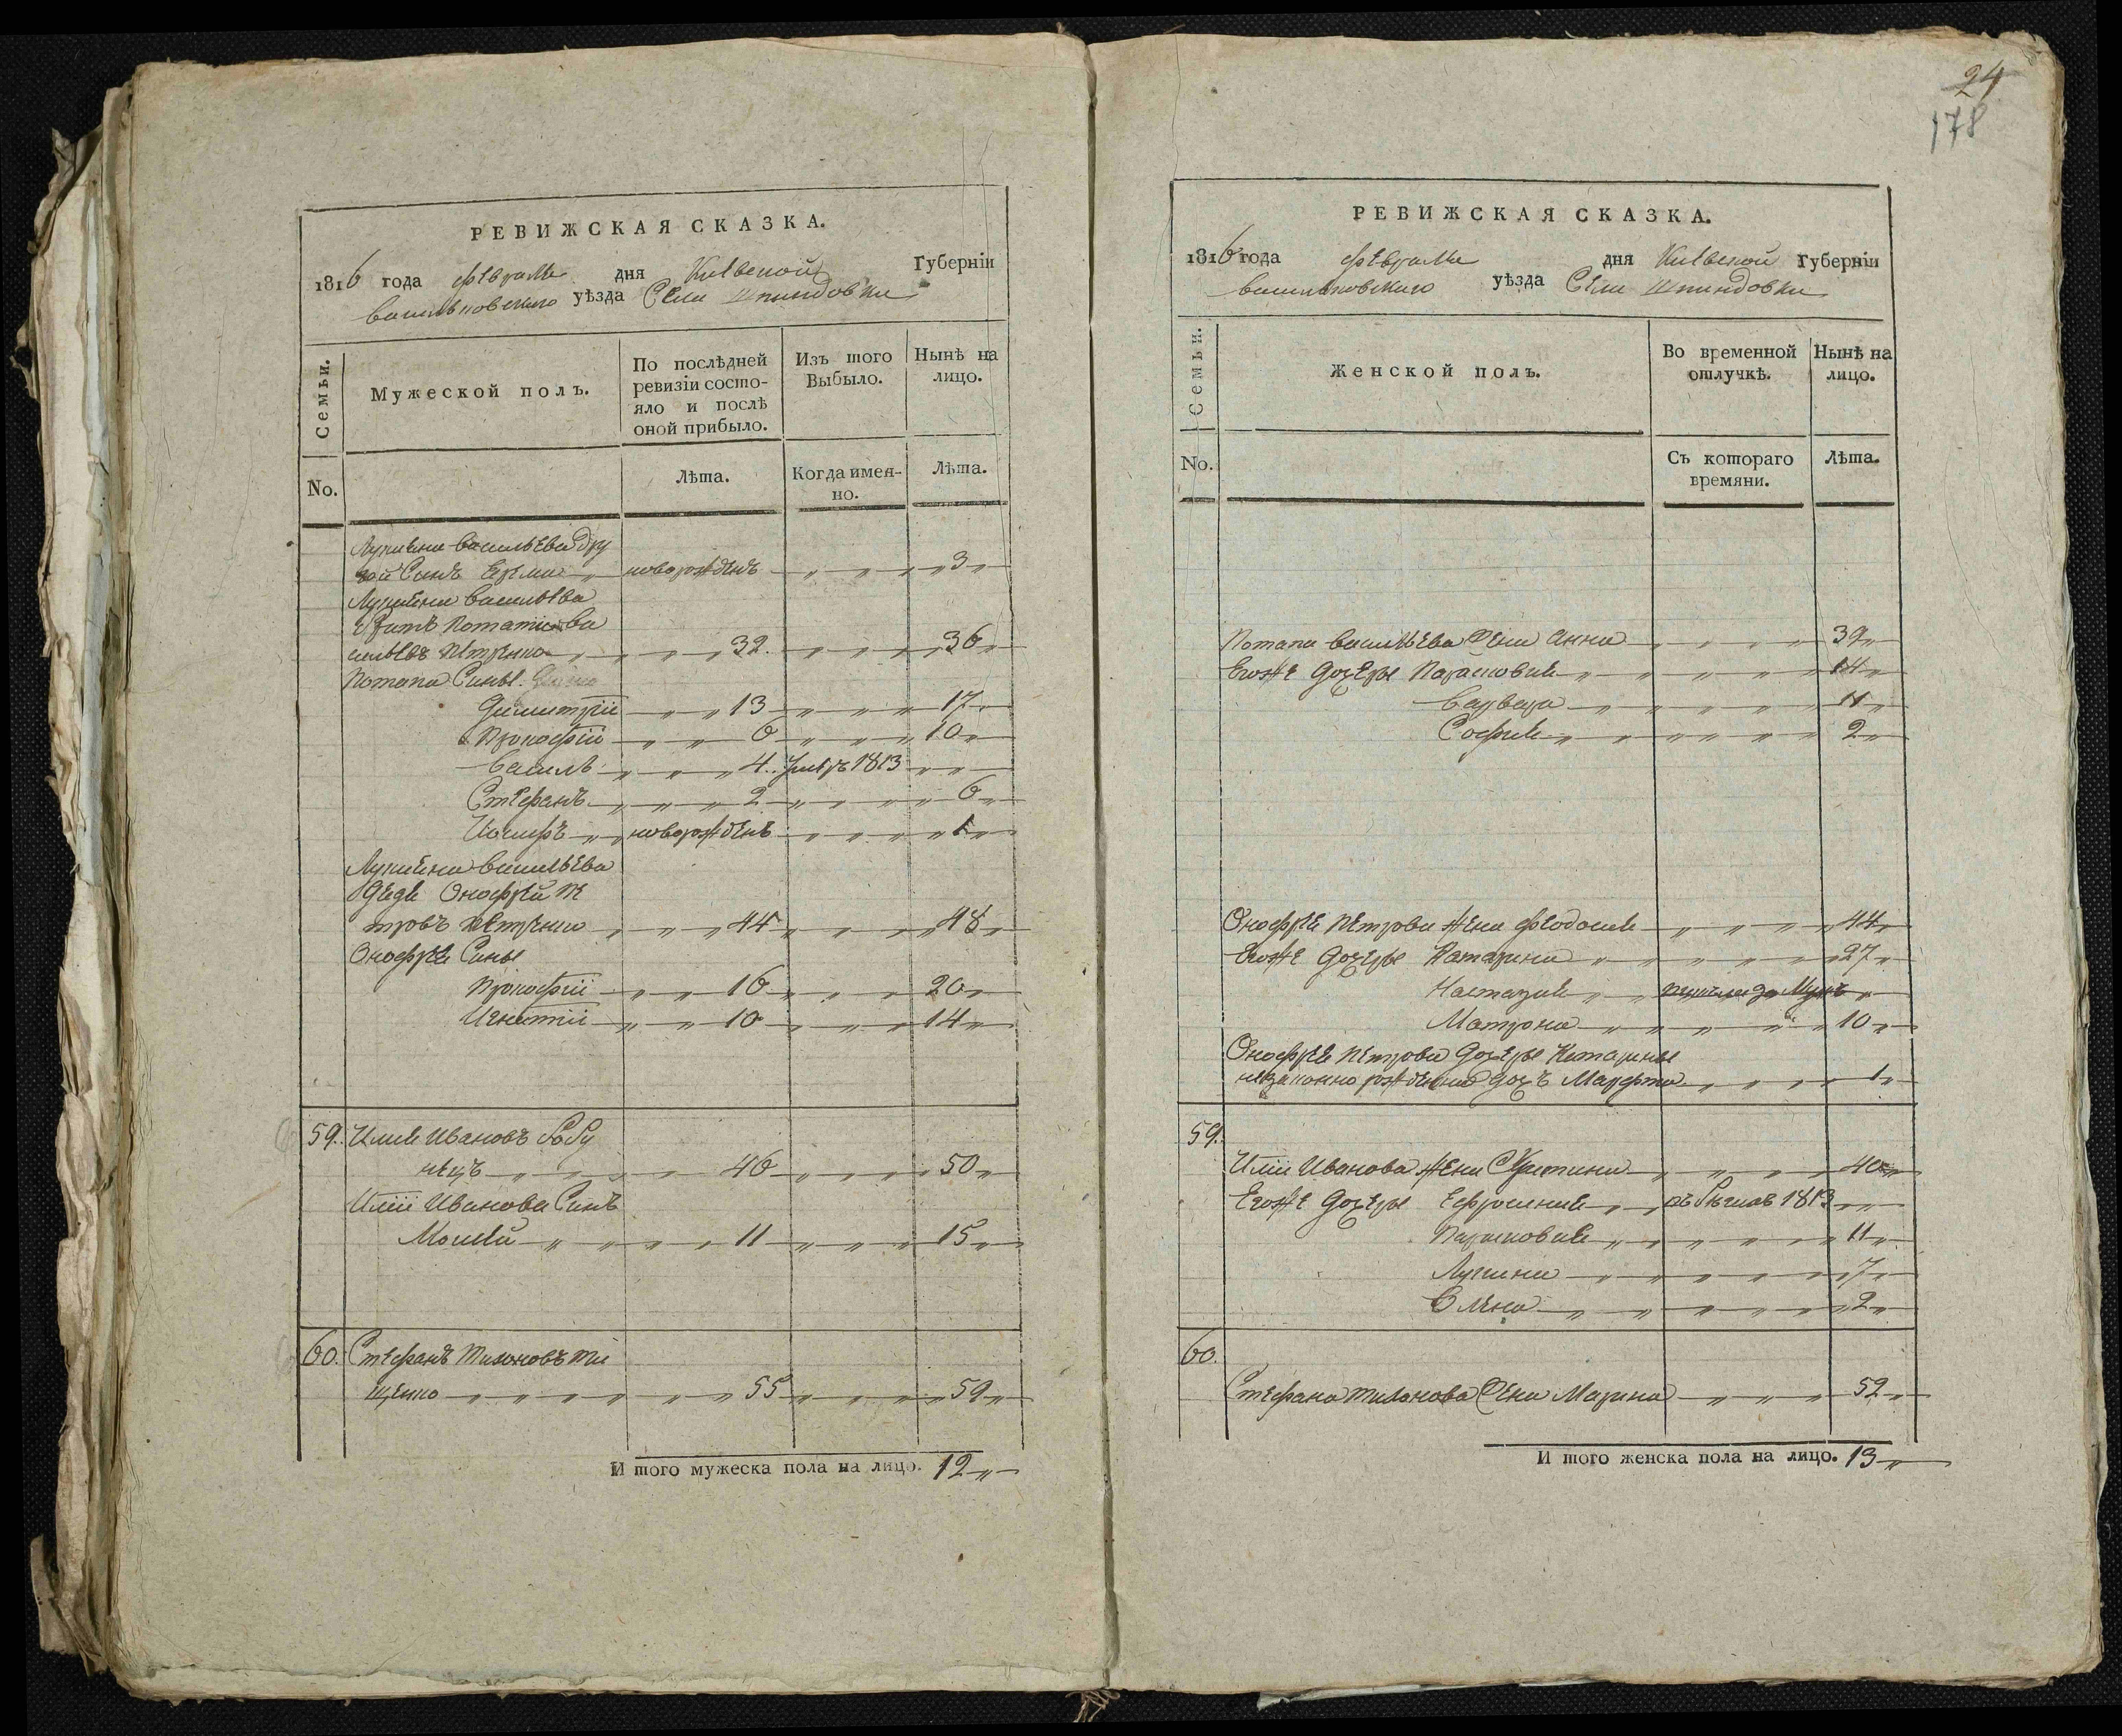 РЕВИЖСКАЯ СКАЗКА.
1816 года февраля дня Киевской Губерніи
васильковского уѣзда Села Шпиндовки
Семьи.
Мужеской полъ.
По послѣдней ревизіи состояло и послѣ оной прибыло.
Изъ того Выбыло.
Нынѣ на лицо.
No.
Лѣта.
Когда имея-
но.
Лѣта.
Лукияна васильева дру
гой Синъ Ерма новорожденъ 3
Лукияна васильева
Зять Потапъ ва
сильевъ Петренко 32. 36
Потапа Сины.
Димитрій 13 17
Прокофій 6 10
Василь 4 умеръ 1813
Стефанъ 2 6
Иосифъ новорожденъ 1
Лукияна васильева
Дядя Онофрей Пе
тровъ Петренко 44 48
Онофрея Сины
Прокофій 16 20
Игнатій 10 14
59. Илия Ивановъ
нецъ 46 50
Иліи Иванова Синъ
Мосей 11 15
60. Стефанъ Тихоновъ Ти
щенко 55 59
И того мужеска пола на лицо. 12
24
178
РЕВИЖСКАЯ СКАЗКА.
1816 года февраля дня Киевской Губерніи
васильковского уѣзда Села Шпиндовки
Семьи.
Женской полъ.
Во временной отлучкѣ.
Нынѣ на лицо.
No.
Съ котораго времяни.
Лѣта.
Потапа васильева Жена Анна 39
Егоже дочеры Парасковия 14
Варвара 11
София 2
Онофрея Петрова жена Феодосия 44
Егоже дочеры Катарина 27
Настазия за Мужъ
Матрона 10
Онофрея Петрова дочеры Катарины
незаконно рожденна дочъ Марфта 1
59.
Иліи Иванова жена Христина 40
Егоже дочеры Ефросиния въ бегахъ 1813
Парасковия 11
Лукина 7
Олена 2
60.
Стефана Тихонова Жена Марина 52
И того женска пола на лицо. 13